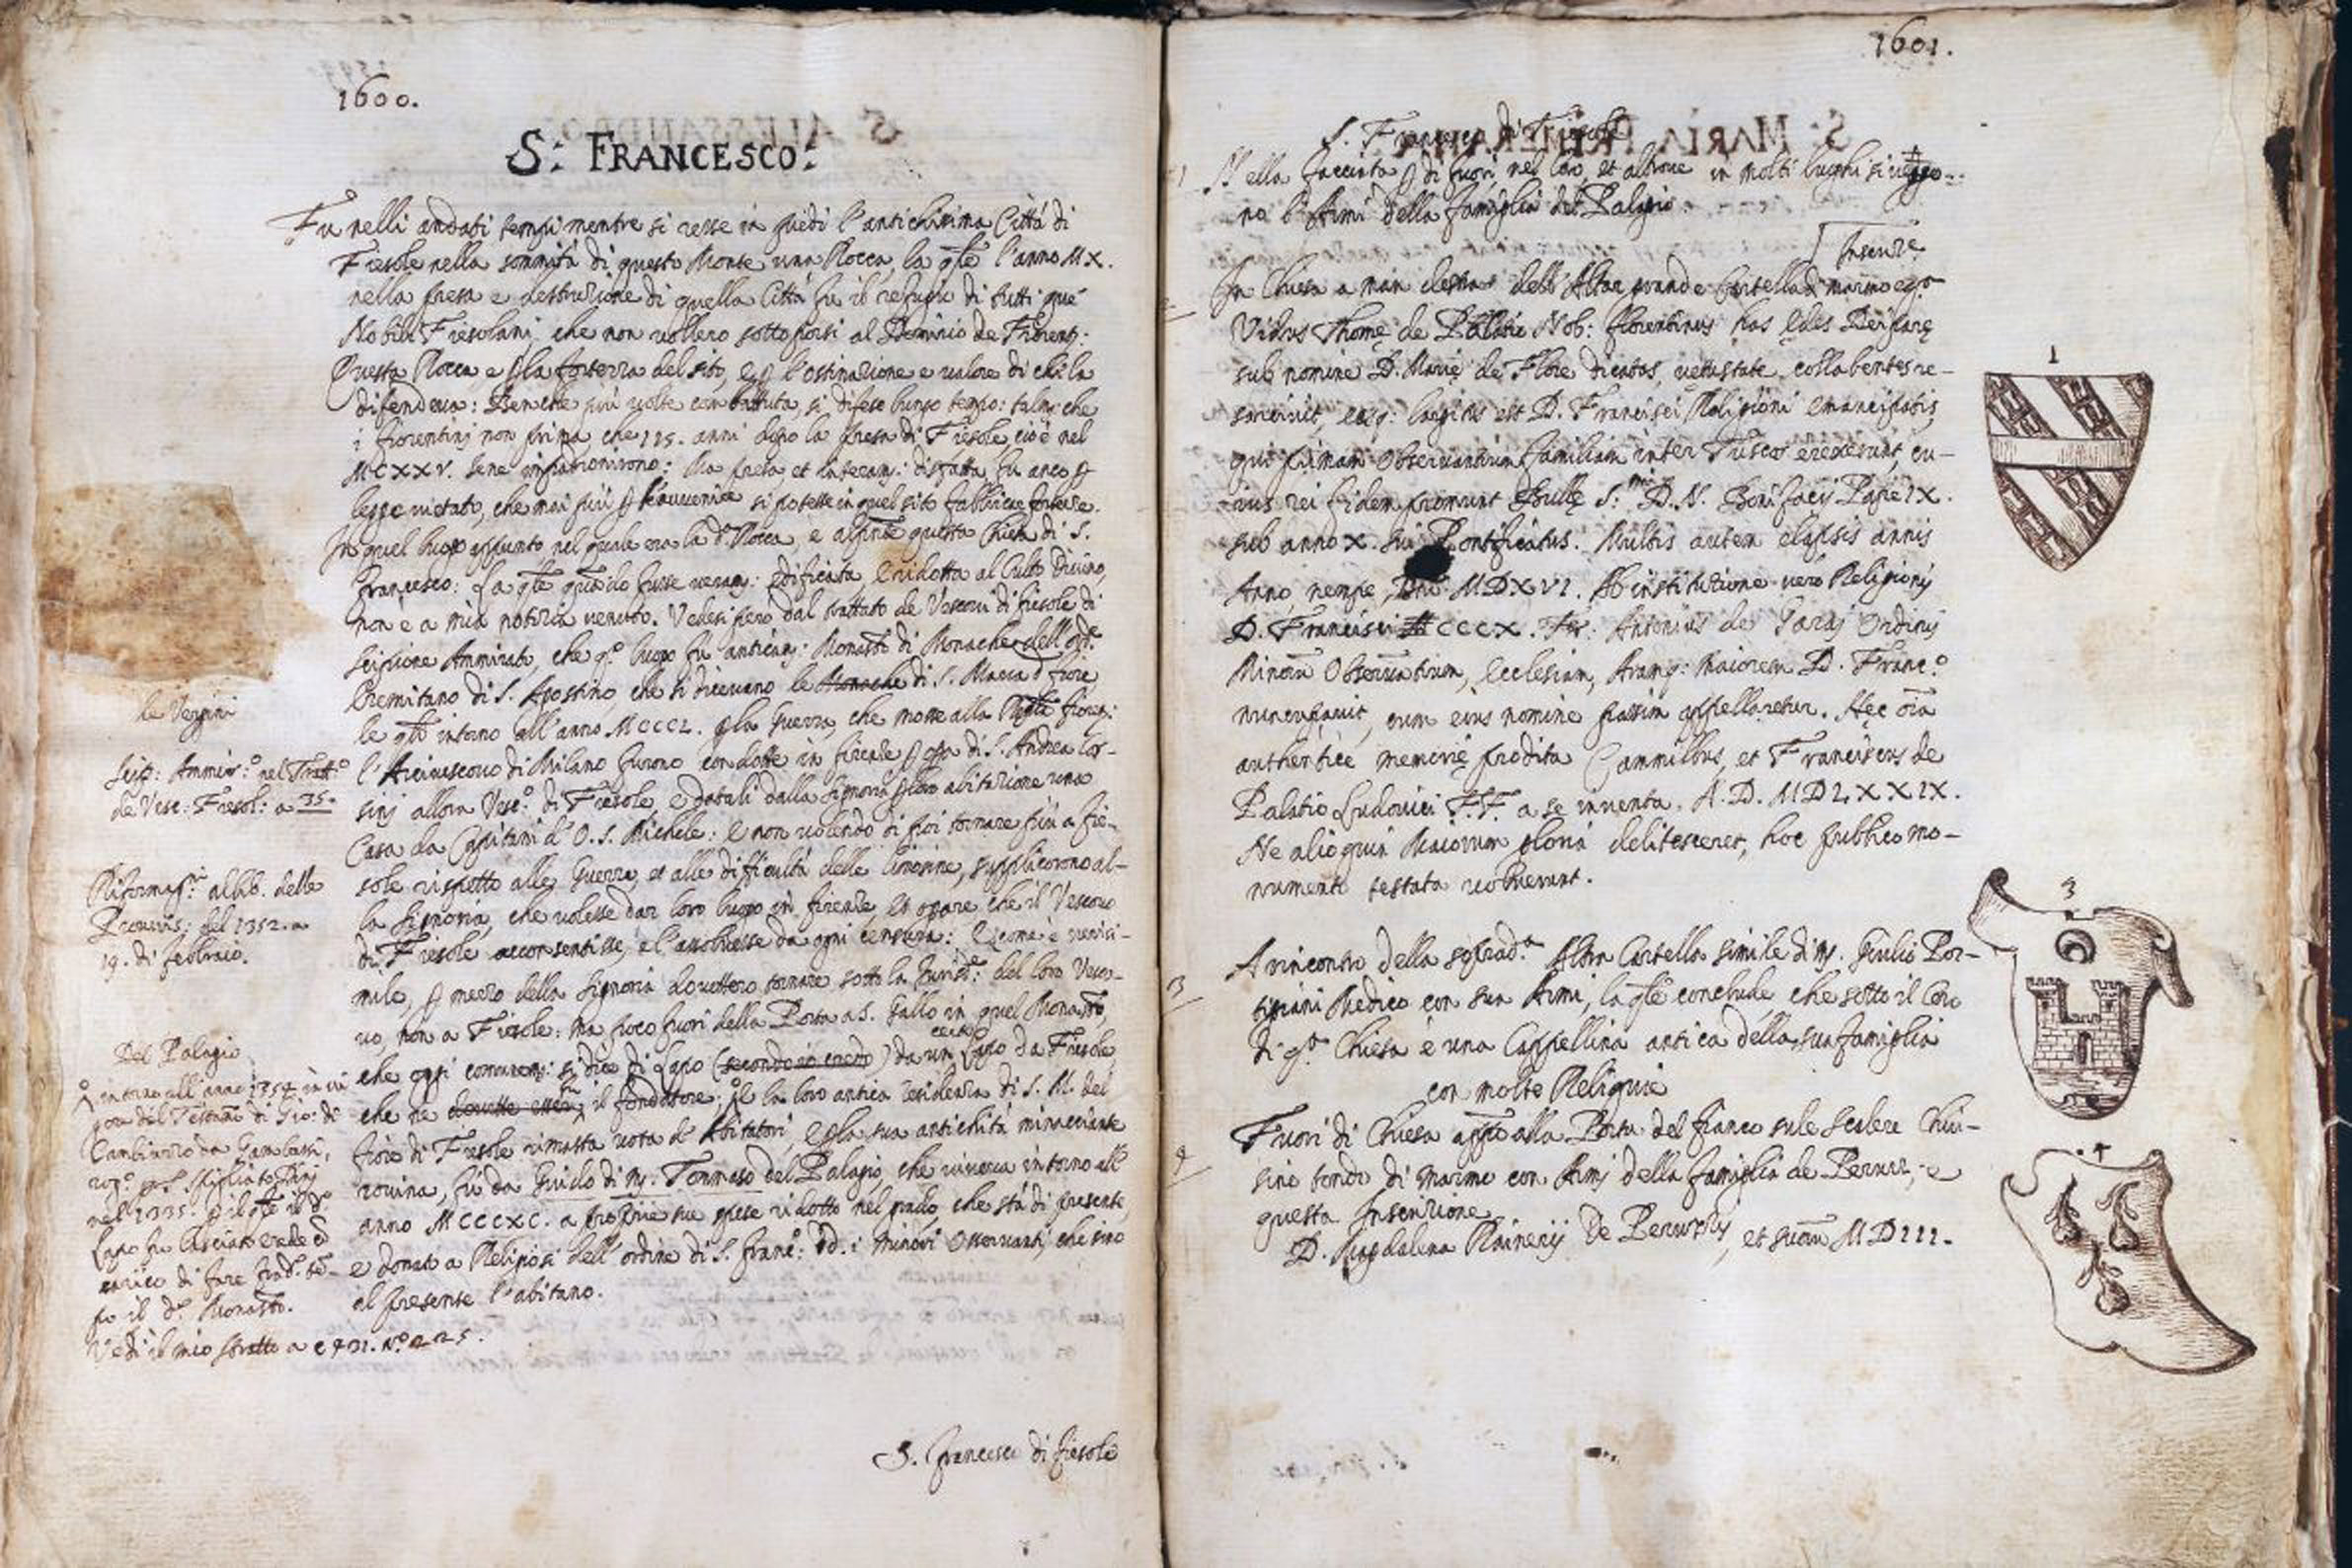 1600.
S: FRANCESCO:
Fu nelli andati tempi mentre si resse in piedi l'antichissima Città di
Fiesole nella sommità di questo Monte una Rocca, la qle l'anno MX.
nella presa e destruzione di quella Città fu il refugio di tutti que
Nobili Fiesolani, che non vollero sottoporsi al Dominio de Fiorent:
Questa Rocca e p la fortezza del sito, e p l'ostinazione e valore di chi la
difendeva: Benche più volte combattuta, si difese lungo tempo: talmte che
i fiorentini non prima che 125. anni dopo la presa di Fiesole, cioè nel
MCXXV. sene impadronirono: Ma presa, et interam: disfatta, fu anco p
legge vietato, che mai più p l'avvenire si potesse in quel sito fabbricar fortezze.
In quel luogo appunto nel quale era la da Rocca, è al pnte questa Chiesa di S.
Francesco: La qle quando fusse veram: edificata, e ridotta al Culto divino,
non è a mia notizia venuto. Vedesi pero dal trattato de Vescovi di fiesole di
Scipione Ammirato, che qo luogo fu anticam: Monasto di Monache dell'orde
Eremitano di S. Agostino che si dicevano le Monache di S. Maria d fiore,
le qli intorno all'anno MCCCL. p la Guerra, che mosse alla fioren:
l'Arcivescovo di Milano furono condotte in firenze p opa di S. Andrea Cor-
sini allora Veso: di Fiesole, e datali dalla Signoria p loro abitazione una
Casa da Capitani d'O. S. Michele: E non volendo di poi tornare più a fie-
sole rispetto alle Guerra, et alle difficultà delle limosine, supplicorono al-
la Signoria, che volesse dar loro luogo in firenze, et oprare che il Vescovo
di Fiesole acconsentisse, e l'assolvesse da ogni censura: E come è verisi-
mile, p mezzo della Signoria dovettero tornare sotto la Iurisde: del loro Vesco-
vo, non a Fiesole: ma poco fuori della Porta a S. Gallo in quel Monasto,
che oggi comunem: si dice di Lapo (secondo io credo) da un certo Lapo da Fiesole
che ne dovette esser fu il fondatore: E la loro antica residenza di S. M. del
fiore di Fiesole rimasta vota d'Abitatori, e p la sua antichità minacciante
rovina, fu da Guido di M. Tommaso del Palagio, che viveva intorno all'
anno MCCCXC. a proprie sue spese ridotto nel grado, che stà di presente,
e donato a Religiosi dell'ordine di S. Franco: i Minori Osservanti, che sino
al presente l'abitano.
le Vergini
Scip: Ammiro: nel Tratto
de Vesc: Fiesol: a 35.
Riformagni al lib. delle
Provvis: del 1352. a
19. di febbraio.
Del Palagio
intorno all'anno 1354 in cui
del Testamto di Gio: di
Cambiuzzo da Gambassi,
nel 1335. p il qle il do
Lapo fu lasciato erede con
carico di fare
to il do Monasto.
Vedi il mio stratto a c 431. No 225.
S. Francesco di fiesole
1601.
S. Francesco di Fiesole
1 Nella facciata p di fuori, nel Coro, et altrove in molti luoghi si veggo-
no l'Armi della famiglia del Palagio.
Inscrize
2 In Chiesa a man destra dell'Altar grande Cartella di marmo
Vidus Thomę de Palatio Nob: florentinus has Ędes Deiparę
sub nomine D. Marię de Flore dicatas, vetustate collabentes re-
sarcivit, easq: largitus est D. Francisci Religioni emancipatis,
qui primam Observantium familiam inter Tuscos erexerunt, cu-
ius rei fidem promunt Bullę S:mi D. N. Bonifacij Papę IX.
sub anno X. sui Pontificatus. Multis autem elapsis annis
Anno, nempe, Dni MDXVI. Ab institutione vero Religionis
D. Francisci CCCX. Fr: Antonius de Ordinis
Minorū Observantium, Ecclesiam, Aramq: maiorem D. Franco
nuncupavit, cum eius nomine passim appellaretur. Hęc oīa
authenticę memorię prodita Cammillus, et Franciscus de
Palatio Ludovici F.F. a se inventa. A. D. MDLXXIX.
Ne alioquin Maiorum gloria delitesceret, hoc publico mo-
numento testata voluerunt.
3 A rincontro della sopradta Altra Cartella simile di M. Giulio Por-
tigiani Medico con sua Armi, la qle conclude, che sotto il Coro
di qta Chiesa è una Cappellina antica della sua famiglia
con molte Reliquie
4 Fuori di Chiesa appto alla Porta del fianco sule scalere Chiu-
sino tondo di marmo con Armi della famiglia de Peruzzi, e
questa Inscrizione
D. Magdalena Rainerij de Peruzzis, et suorū MDIII.
1
3
4